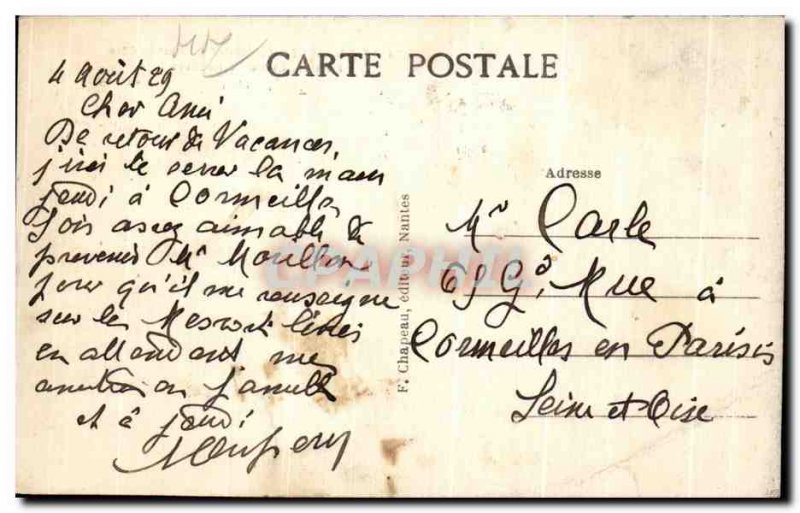 CARTE POSTALE
4 Août 29
Cher Ami
De retour de Vacances,
j'irai te serrer la main
jeudi à Cormeilles
Sois assez aimable de
prevenir Mr
pour qu'il me renseigne
sur les
en attendant me
en famille
et à jeudi
Adresse
Mr Carle
69 Gde Rue à
Cormeilles en Parisis
Seine et Oise
F. Chapeau, éditeur, Nantes
CPAPHIL